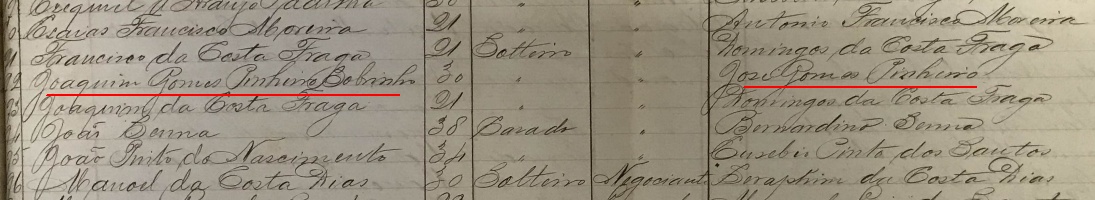 Francisco Moreira 21 " " Antonio Francisco Moreira
Francisco da Costa Fraga 21 Solteiro " Domingos da Costa Fraga
Joaquim Gomes Pinheiro Sobrinho 30 " " José Gomes Pinheiro
Joaquim da Costa Fraga 21 " " Domingos da Costa Fraga
João Senna 38 Casado " Bernardino Senna
João Pinto do Nascimento 34 " " Eusebio Pinto dos Santos
96 Manoel da Costa Dias 30 Solteiro Negociante Seraphim da Costa Dias